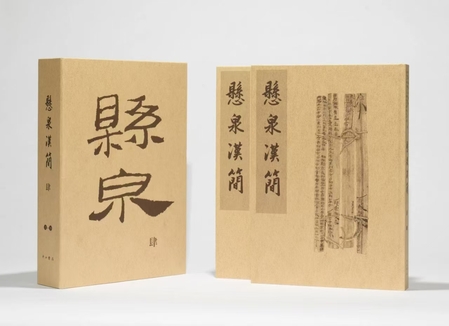 懸泉漢簡
肆
縣泉
肆
懸泉漢簡
懸泉漢簡